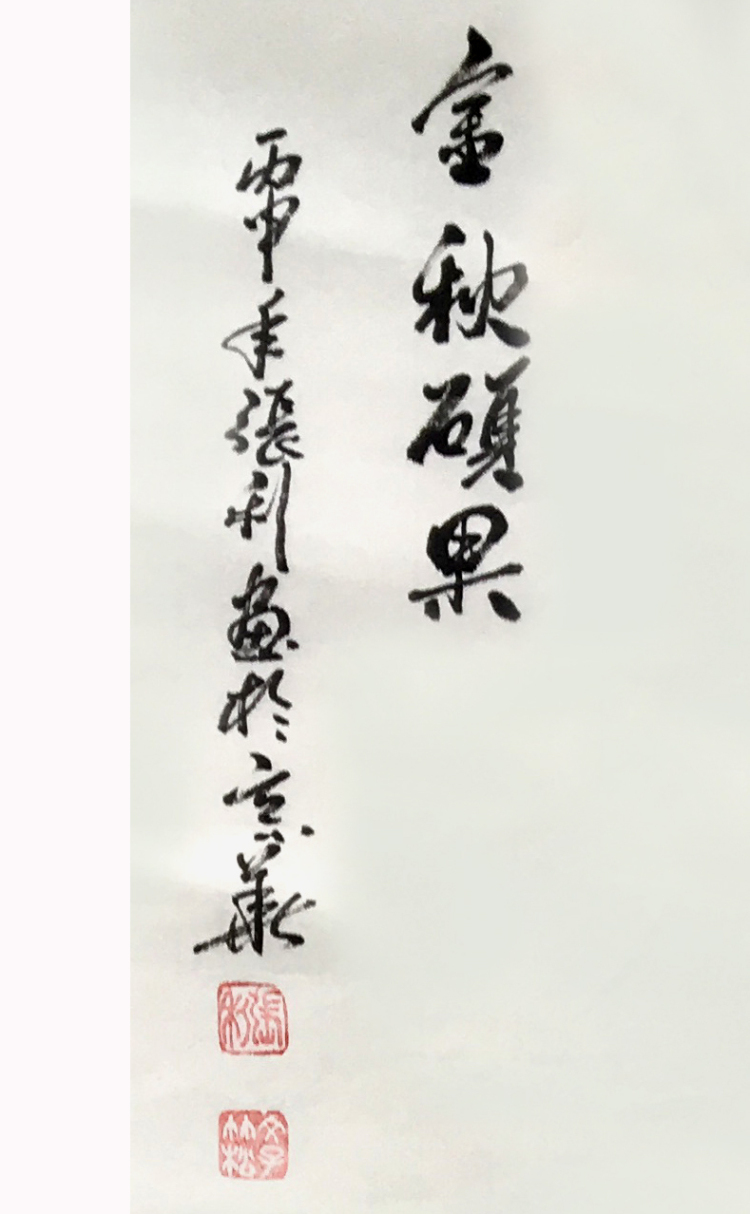 金秋碩果
丙申年張利畫於京華
張利